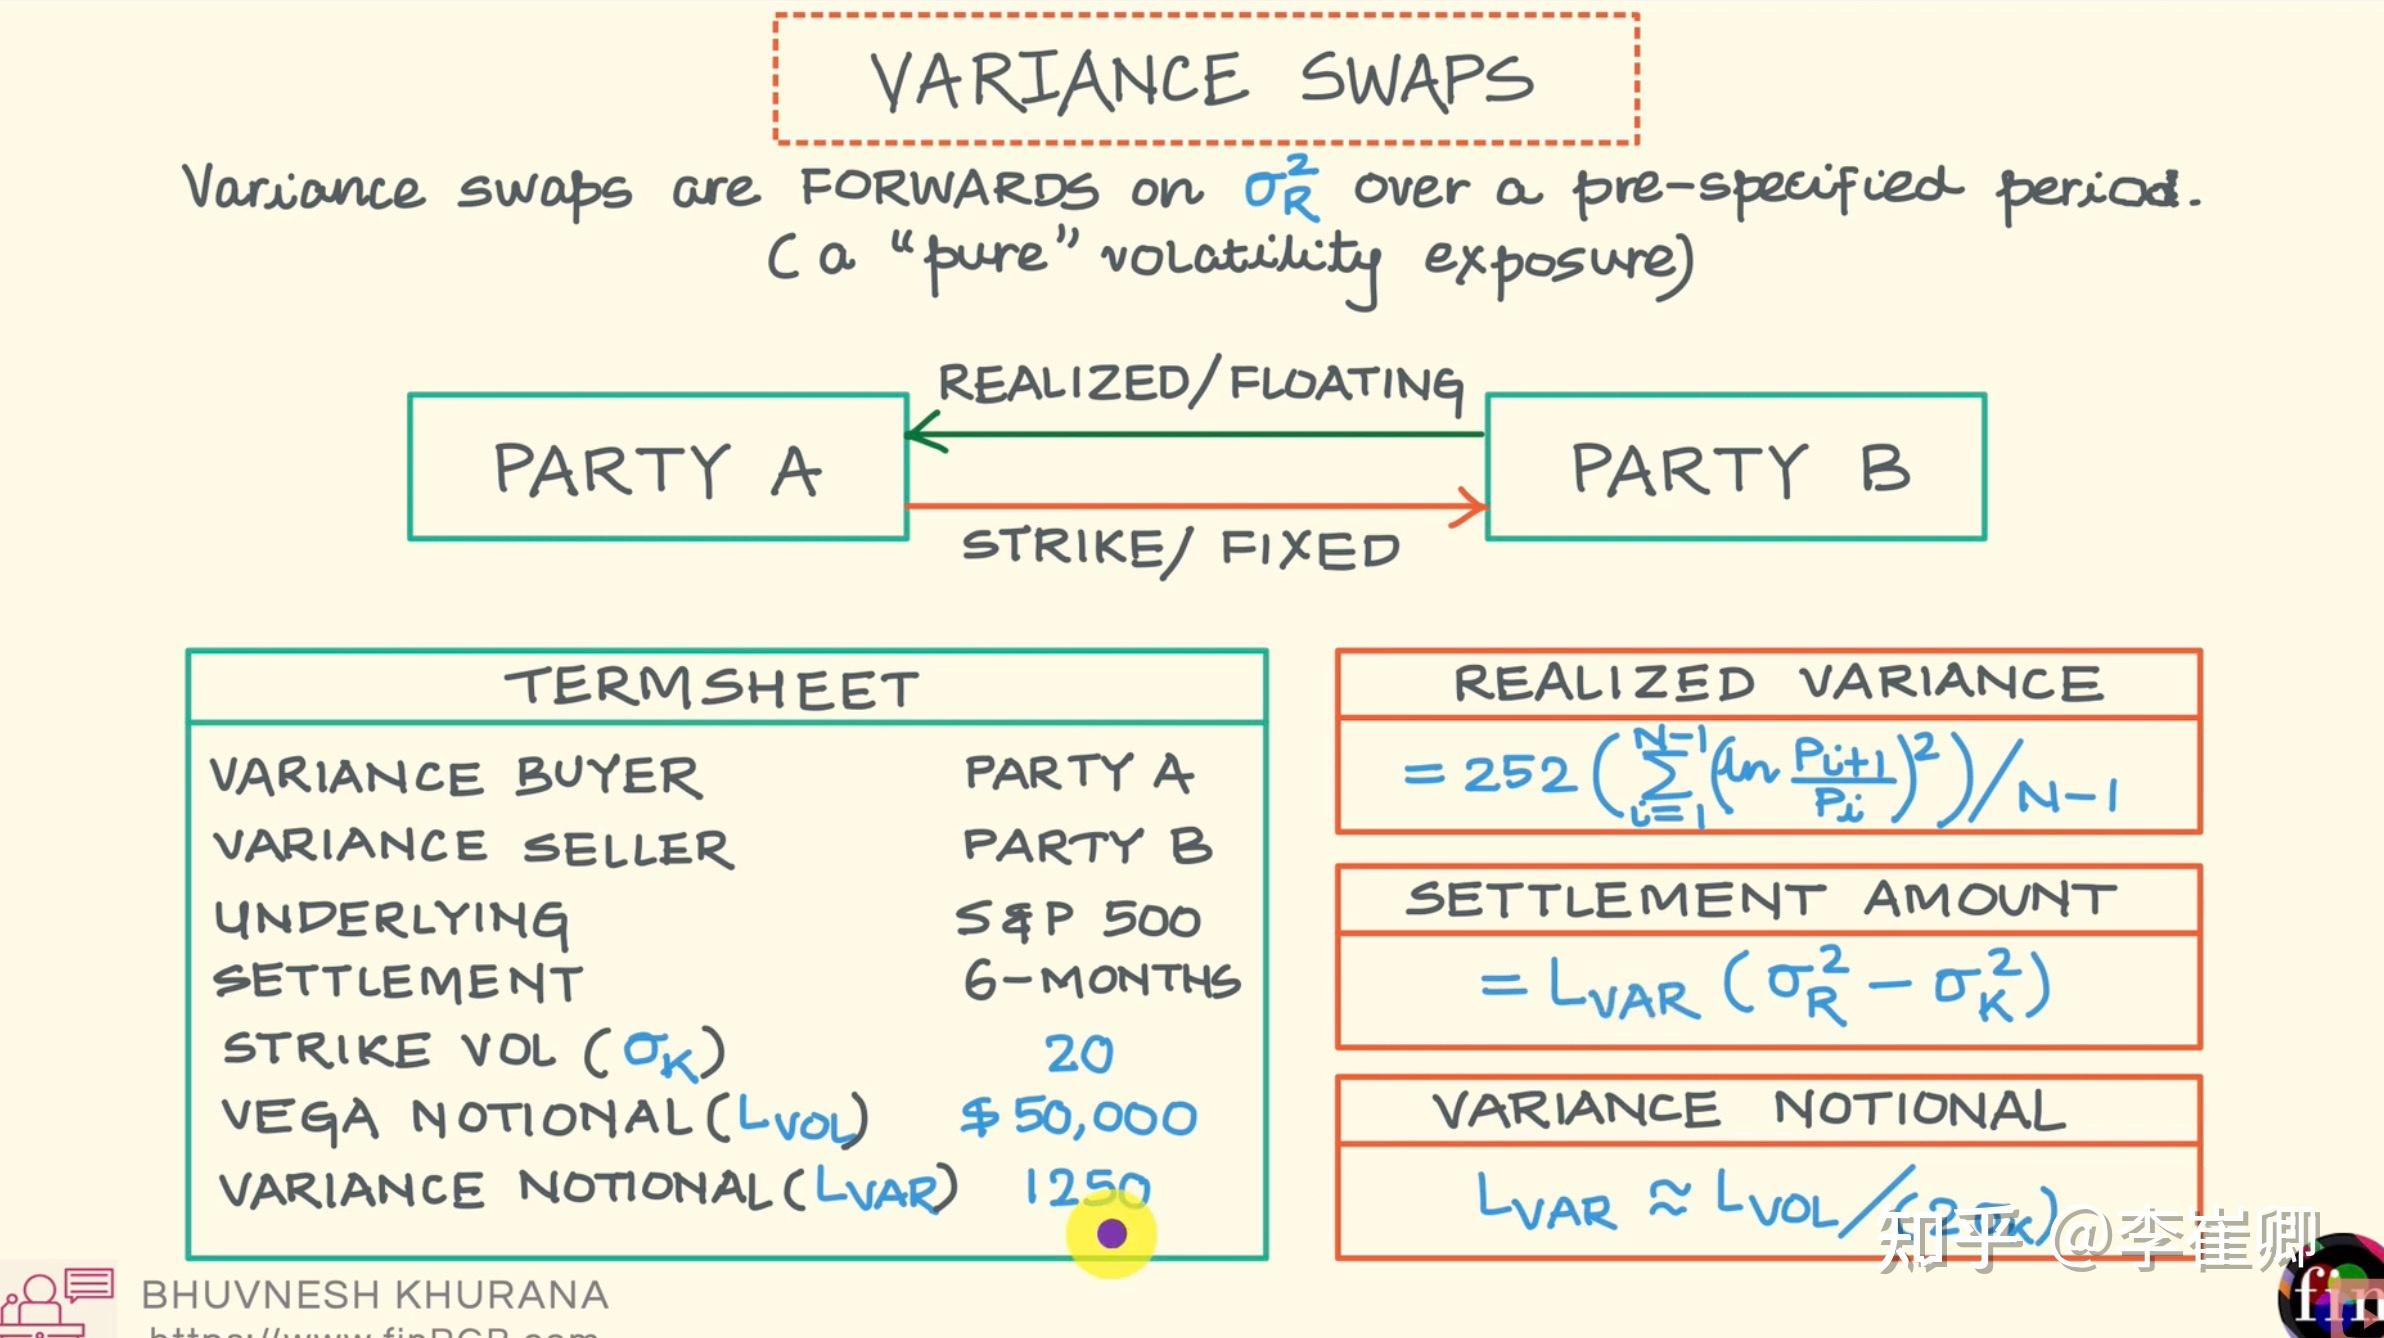 VARIANCE SWAPS
Variance swaps are FORWARDS on σ_R^2 over a pre-specified period.
(a "pure" volatility exposure)
REALIZED/FLOATING
PARTY A
PARTY B
STRIKE/ FIXED
TERMSHEET
VARIANCE BUYER PARTY A
VARIANCE SELLER PARTY B
UNDERLYING S&P 500
SETTLEMENT 6-MONTHS
STRIKE VOL (σ_K) 20
VEGA NOTIONAL (L_VOL) $50,000
VARIANCE NOTIONAL (L_VAR) 1250
REALIZED VARIANCE
= 252 (∑_{i=1}^{N-1} (ln P_{i+1}/P_i)^2) / N-1
SETTLEMENT AMOUNT
= L_VAR (σ_R^2 - σ_K^2)
VARIANCE NOTIONAL
L_VAR ≈ L_VOL / (2σ_K)
知乎 @李崔卿
BHUVNESH KHURANA
https://www.finRGB.com
fin